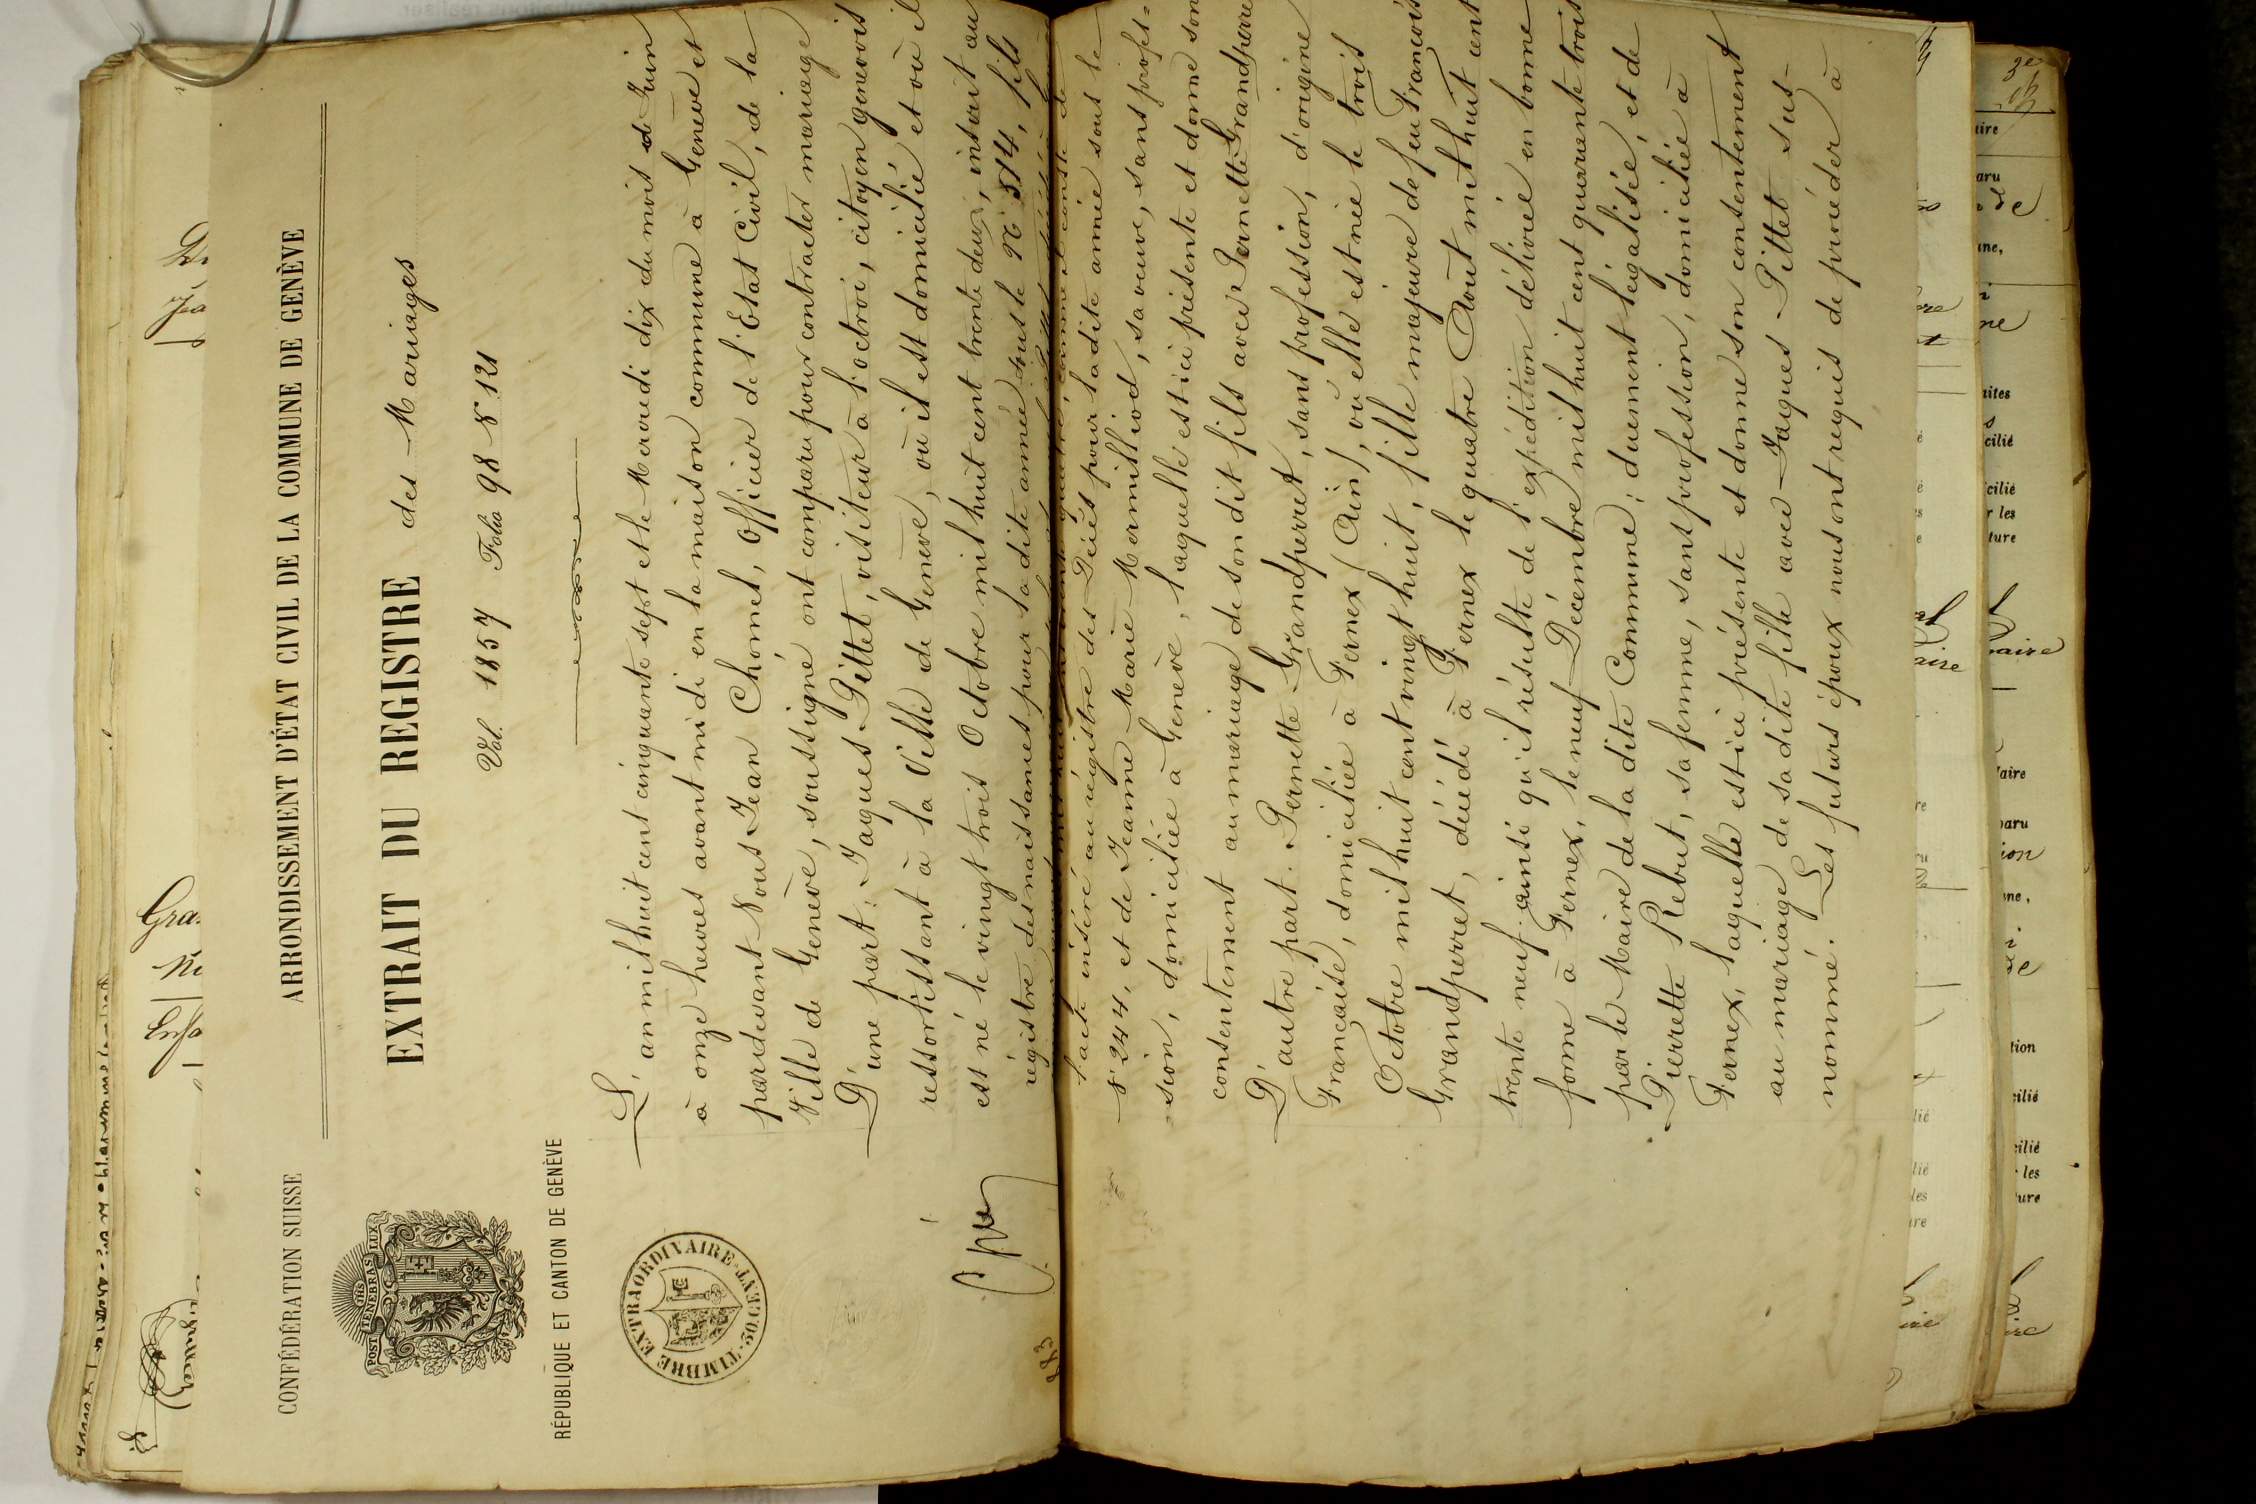 CONFÉDÉRATION SUISSE
ARRONDISSEMENT D'ÉTAT CIVIL DE LA COMMUNE DE GENÈVE
POST TENEBRAS LUX
RÉPUBLIQUE ET CANTON DE GENÈVE
TIMBRE EXTRAORDINAIRE 30 CENT.
EXTRAIT DU REGISTRE des Mariages
Vol. 1857 Folio 98 No 121
L'an mil huit cent cinquante sept et le Mercredi dix du mois de Juin
à onze heures avant midi en la maison commune à Genève et
pardevant Nous Jean Chomel, Officier de l'Etat Civil, de la
Ville de Genève, soussigné ont comparu pour contracter mariage
D'une part: Jaques Pittet, visiteur à l'octroi, citoyen genevois
ressortissant à la Ville de Genève, où il est domicilié et où il
est né le vingt trois Octobre mil huit cent trente deux, inscrit au
régistre des naissances pour la dite année sous le No 514, fils
l'acte inséré au régistre des Décès pour la dite année sous le
No 244, et de Jeanne Marie Mermilliod, sa veuve, sans profes=
=sion, domiciliée à Genève, laquelle est ici présente et donne son
consentement au mariage de son dit fils avec Pernette Grandperret
D'autre part. Pernette Grandperret, sans profession, d'origine
Française, domiciliée à Fernex (Ain), où elle est née le trois
Octobre mil huit cent vingt huit, fille majeure de feu François
Grandperret, décédé à Fernex le quatre Août mil huit cent
trente neuf ainsi qu'il résulte de l'expédition délivrée en bonne
forme à Fernex, le neuf Décembre mil huit cent quarante trois
par le Maire de la dite Commune; duement légalisée, et de
Pierrette Rebut, sa femme, sans profession, domiciliée à
Fernex, laquelle est ici présente et donne son consentement
au mariage de sa dite fille avec Jaques Pittet sus-
nommé. Les futurs époux nous ont requis de procéder à